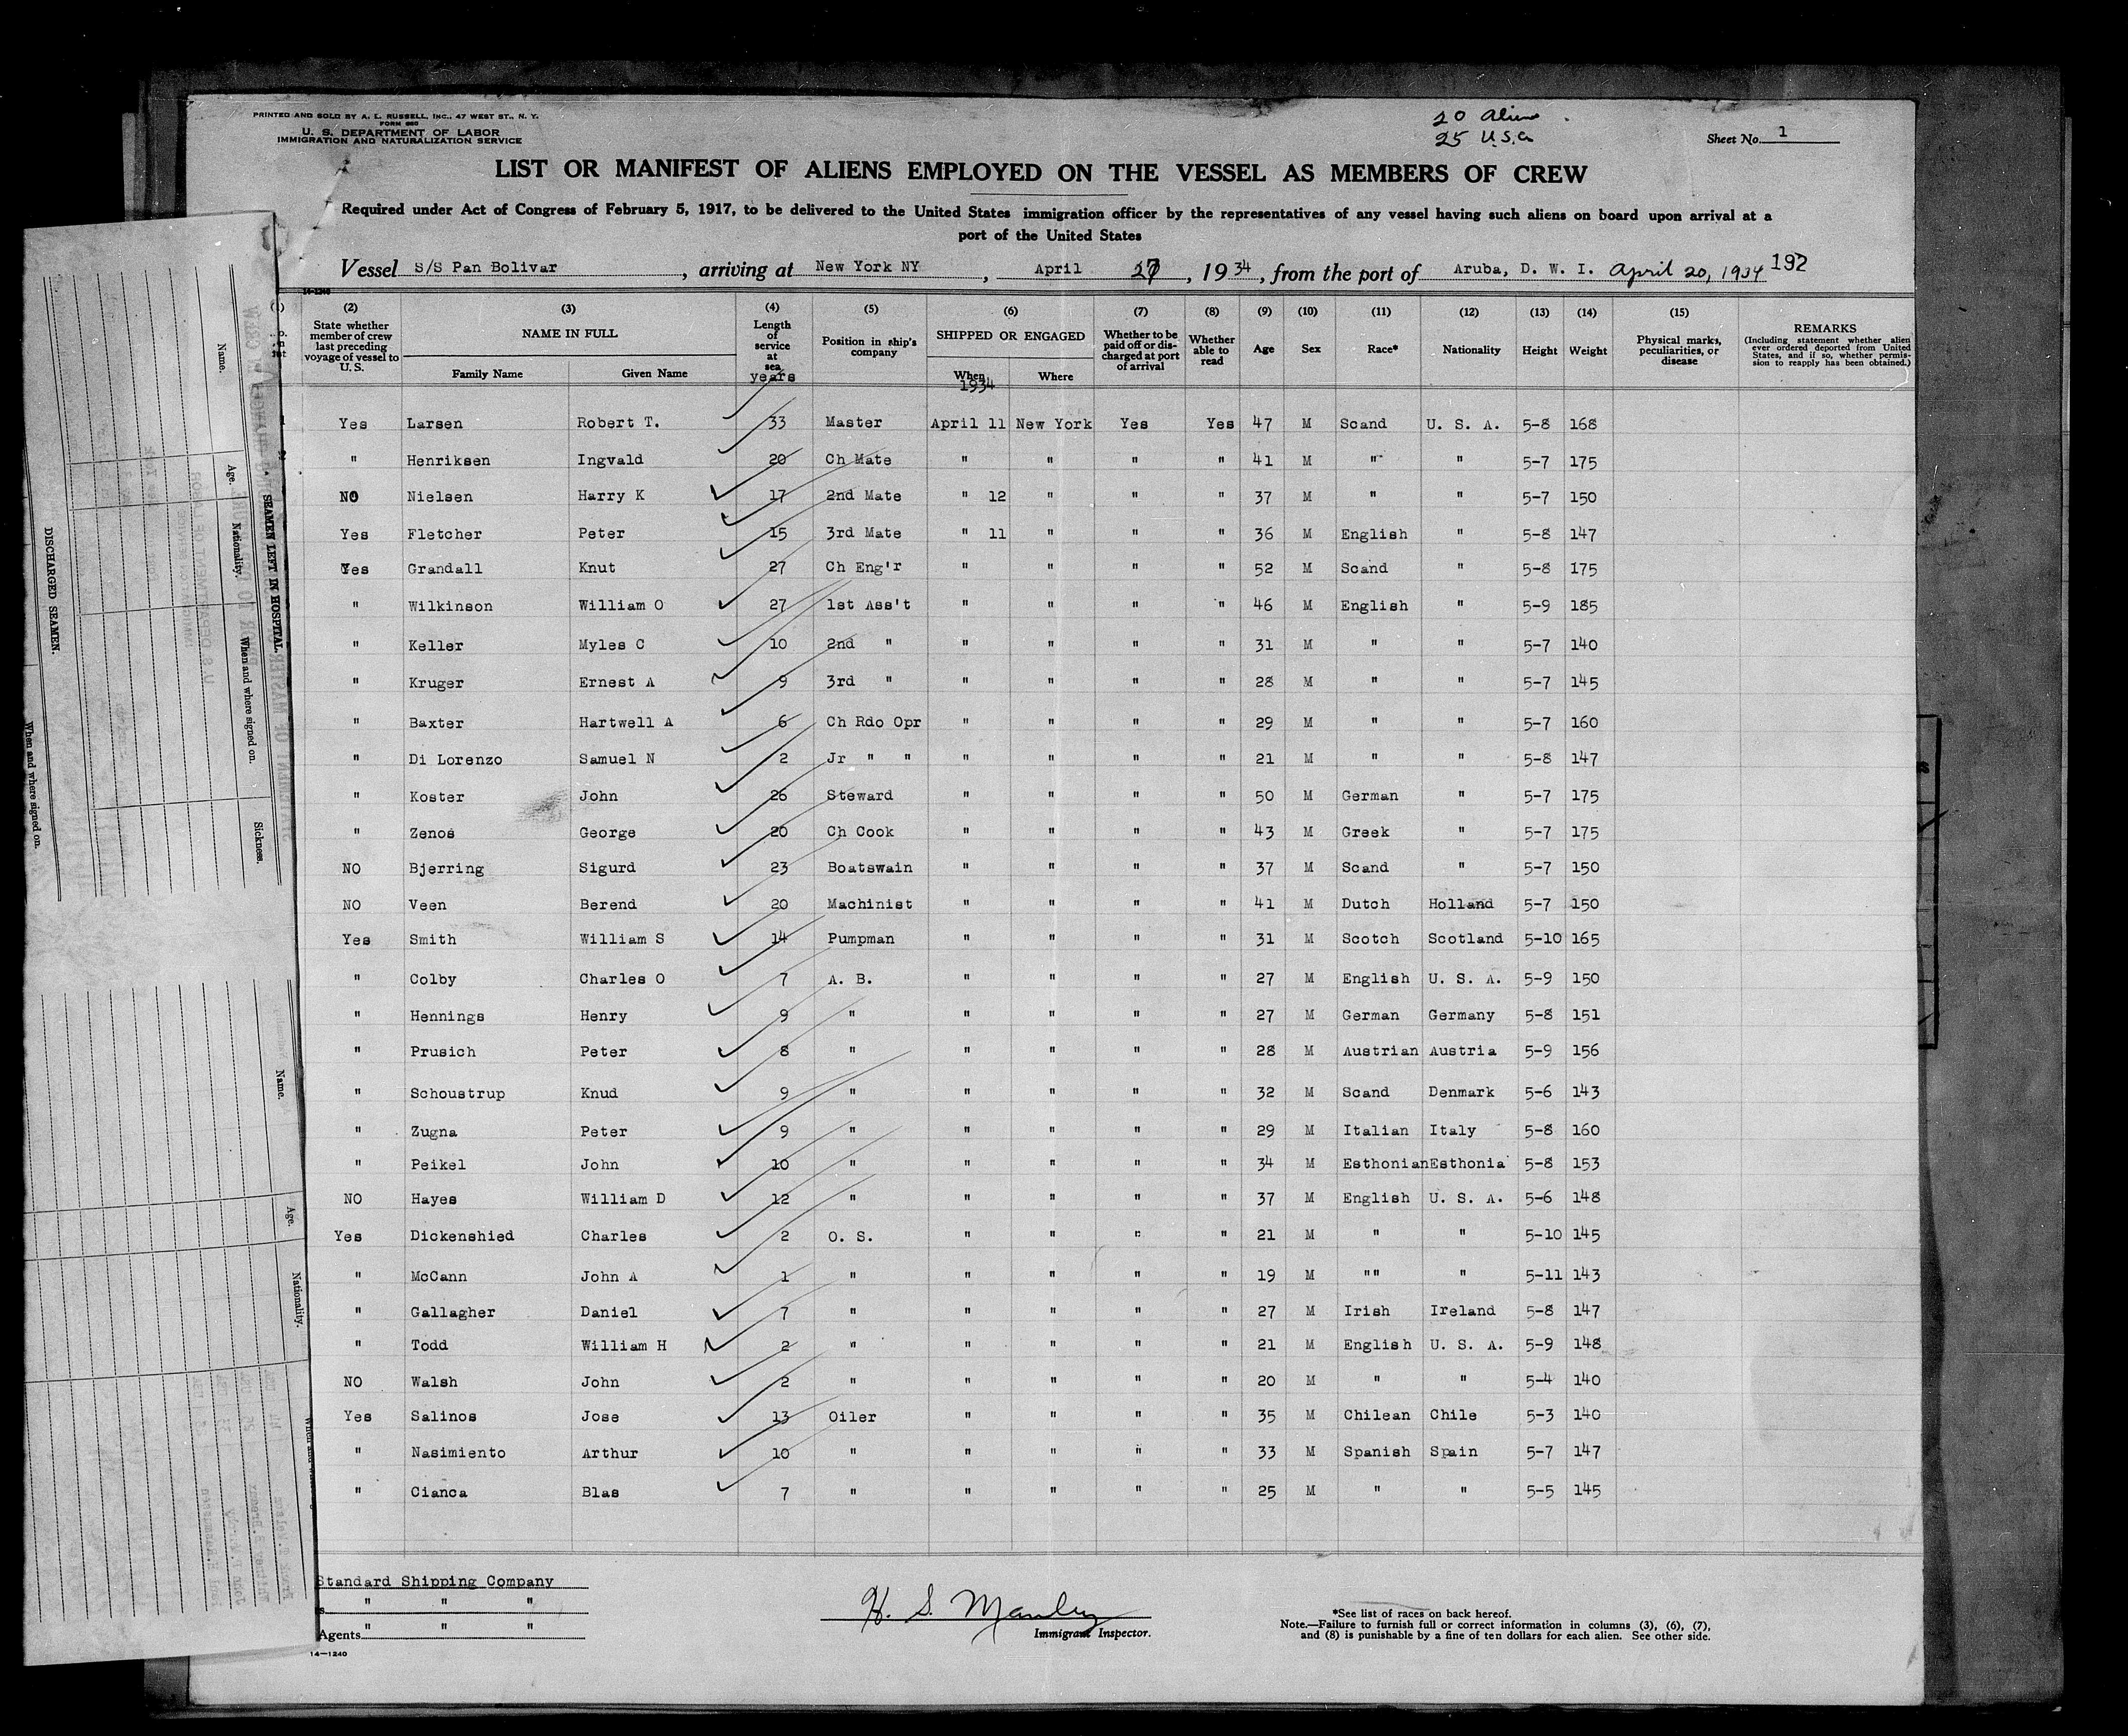 PRINTED AND SOLD BY A. L. RUSSELL, INC., 47 WEST ST., N. Y.
FORM 680
U. S. DEPARTMENT OF LABOR
IMMIGRATION AND NATURALIZATION SERVICE
20 Aliens
25 U.S.C.
Sheet No. 1
LIST OR MANIFEST OF ALIENS EMPLOYED ON THE VESSEL AS MEMBERS OF CREW
Required under Act of Congress of February 5, 1917, to be delivered to the United States immigration officer by the representatives of any vessel having such aliens on board upon arrival at a
port of the United States
Vessel S/S Pan Bolivar, arriving at New York NY, April 27, 1934, from the port of Aruba, D. W. I. April 20, 1934 192
14-1240
(1) (2) (3) (4) (5) (6) (7) (8) (9) (10) (11) (12) (13) (14) (15)
State whether member of crew last preceding voyage of vessel to U. S. NAME IN FULL Family Name Given Name Length of service at sea years Position in ship's company SHIPPED OR ENGAGED When 1934 Where Whether to be paid off or discharged at port of arrival Whether able to read Age Sex Race* Nationality Height Weight Physical marks, peculiarities, or disease REMARKS (Including statement whether alien ever ordered deported from United States, and if so, whether permission to reapply has been obtained.)
Yes Larsen Robert T. 33 Master April 11 New York Yes Yes 47 M Scand U. S. A. 5-8 168
" Henriksen Ingvald 20 Ch Mate " " " " 41 M " " 5-7 175
NO Nielsen Harry K 17 2nd Mate " 12 " " " 37 M " " 5-7 150
Yes Fletcher Peter 15 3rd Mate " 11 " " " 36 M English " 5-8 147
Yes Grandall Knut 27 Ch Eng'r " " " " 52 M Scand " 5-8 175
" Wilkinson William O 27 1st Ass't " " " " 46 M English " 5-9 185
" Keller Myles C 10 2nd " " " " " 31 M " " 5-7 140
" Kruger Ernest A 9 3rd " " " " " 28 M " " 5-7 145
" Baxter Hartwell A 6 Ch Rdo Opr " " " " 29 M " " 5-7 160
" Di Lorenzo Samuel N 2 Jr " " " " " " 21 M " " 5-8 147
" Koster John 26 Steward " " " " 50 M German " 5-7 175
" Zenos George 20 Ch Cook " " " " 43 M Greek " 5-7 175
NO Bjerring Sigurd 23 Boatswain " " " " 37 M Scand " 5-7 150
NO Veen Berend 20 Machinist " " " " 41 M Dutch Holland 5-7 150
Yes Smith William S 14 Pumpman " " " " 31 M Scotch Scotland 5-10 165
" Colby Charles O 7 A. B. " " " " 27 M English U. S. A. 5-9 150
" Hennings Henry 9 " " " " " 27 M German Germany 5-8 151
" Prusich Peter 8 " " " " " 28 M Austrian Austria 5-9 156
" Schoustrup Knud 9 " " " " " 32 M Scand Denmark 5-6 143
" Zugna Peter 9 " " " " " 29 M Italian Italy 5-8 160
" Peikel John 10 " " " " " 34 M Esthonian Esthonia 5-8 153
NO Hayes William D 12 " " " " " 37 M English U. S. A. 5-6 148
Yes Dickenshied Charles 2 O. S. " " " " 21 M " " 5-10 145
" McCann John A 1 " " " " " 19 M "" " 5-11 143
" Gallagher Daniel 7 " " " " " 27 M Irish Ireland 5-8 147
" Todd William H 2 " " " " " 21 M English U. S. A. 5-9 148
NO Walsh John 2 " " " " " 20 M " " 5-4 140
Yes Salinos Jose 13 Oiler " " " " 35 M Chilean Chile 5-3 140
" Nasimiento Arthur 10 " " " " " 33 M Spanish Spain 5-7 147
" Cianca Blas 7 " " " " " 25 M " " 5-5 145
Standard Shipping Company
" " "
Agents " " "
14-1240
H. S. Manley
Immigrant Inspector.
*See list of races on back hereof.
Note.—Failure to furnish full or correct information in columns (3), (6), (7),
and (8) is punishable by a fine of ten dollars for each alien. See other side.
SEAMEN LEFT IN HOSPITAL.
Name. Age. Nationality. When and where signed on. Sickness.
DISCHARGED SEAMEN.
When and where signed on.
Name. Age. Nationality.